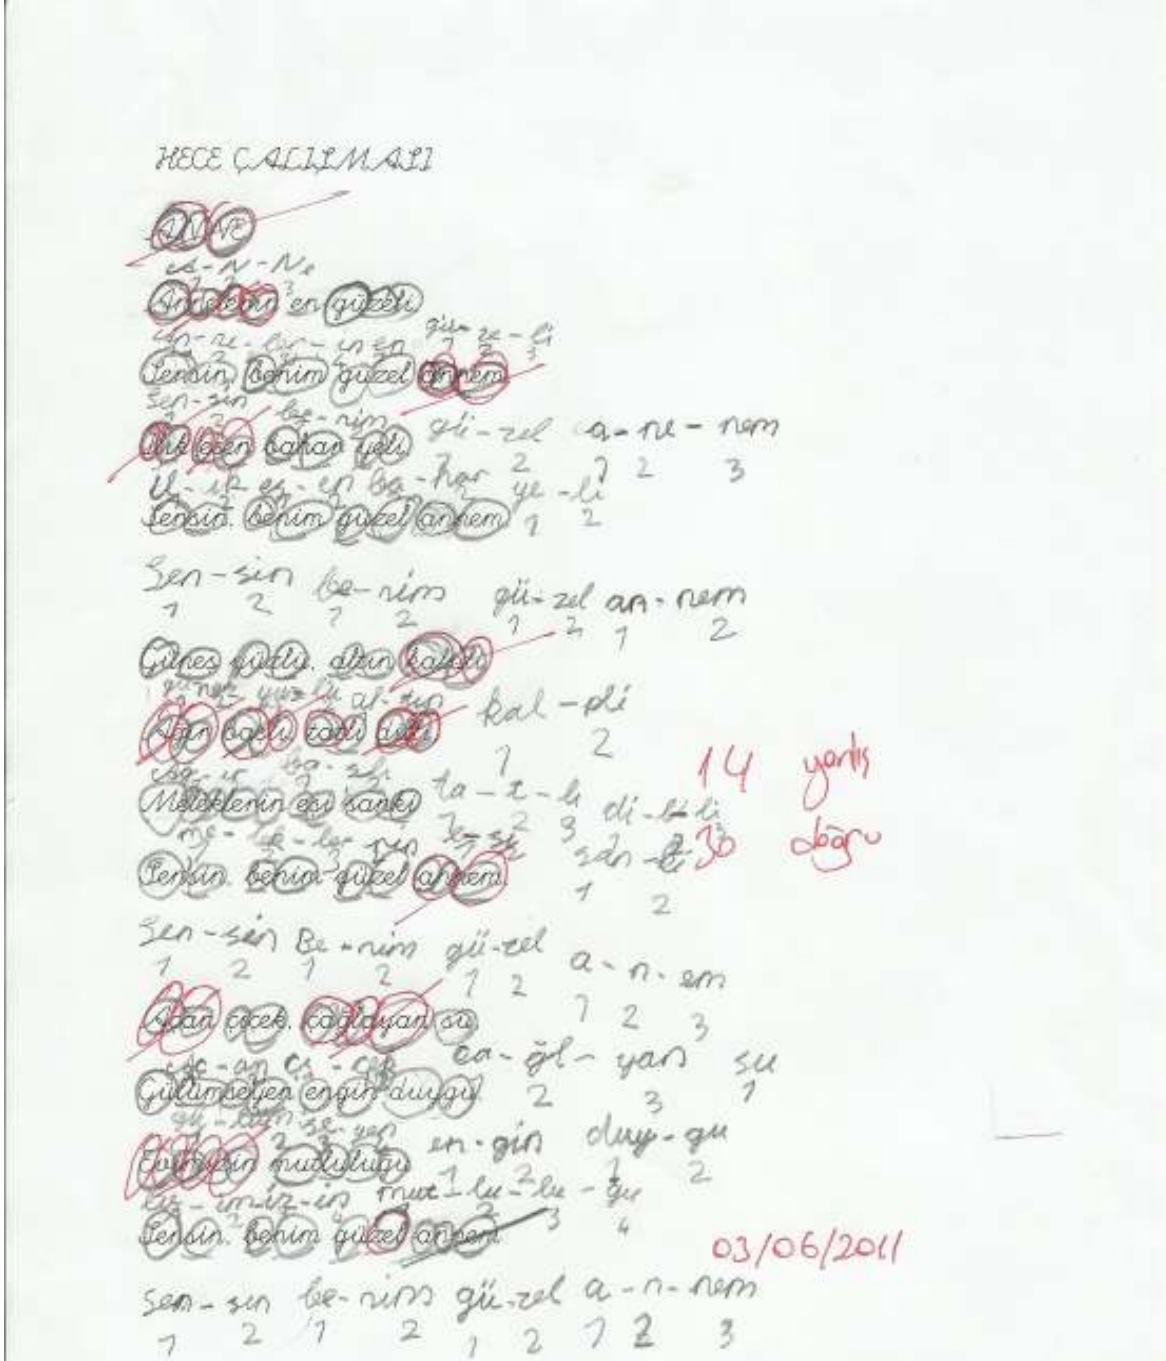 HECE ÇALIŞMASI
ANNE
A-N-Ne
Annelerin en güzeli
an-ne-ler-in en gü-ze-li
1 2 3
Sensin. benim güzel annem
sen-sin be-nim gü-zel a-ne-nem
2 1 2 3
Ilık esen bahar yeli
ıl-ık es-en ba-har ye-li
1 2
Sensin. benim güzel annem
Sen-sin be-nim gü-zel an-nem
1 2 1 2 1 2 1 2
Güneş yüzlü. altın kalpli
gü-neş yüz-lü al-tın kal-pli
1 2
Ağır başlı tatlı dilli
ağ-ır ba-şlı ta-t-lı di-l-li
1 2 3
Meleklerin eşi sanki
me-lek-ler-rin e-şi san-ki
1 2
14 yanlış
30 doğru
Sensin. benim güzel annem.
Sen-sin Be-nim gü-zel a-n-em
1 2 1 2 1 2 1 2 3
Açan çiçek. çağlayan su
aç-an çi-çek ça-ğl-yan su
2 3 1
Gülümseyen engin duygu
gü-lüm-se-yen en-gin duy-gu
1 2 1 2
Evimizin mutluluğu
ev-imiz-in mut-lu-lu-ğu
2 3 4
Sensin. benim güzel annem
03/06/2011
Sen-sin be-nim gü-zel a-n-nem
1 2 1 2 1 2 1 2 3